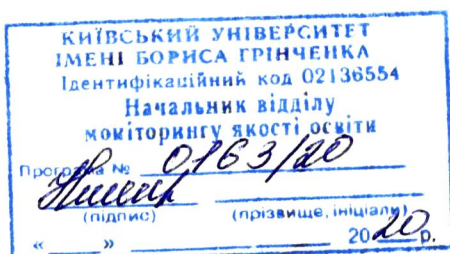 КИЇВСЬКИЙ УНІВЕРСИТЕТ
ІМЕНІ БОРИСА ГРІНЧЕНКА
Ідентифікаційний код 02136554
Начальник відділу
моніторингу якості освіти
Програма № 0163/20
(підпис) (прізвище, ініціали)
« » 2020 р.